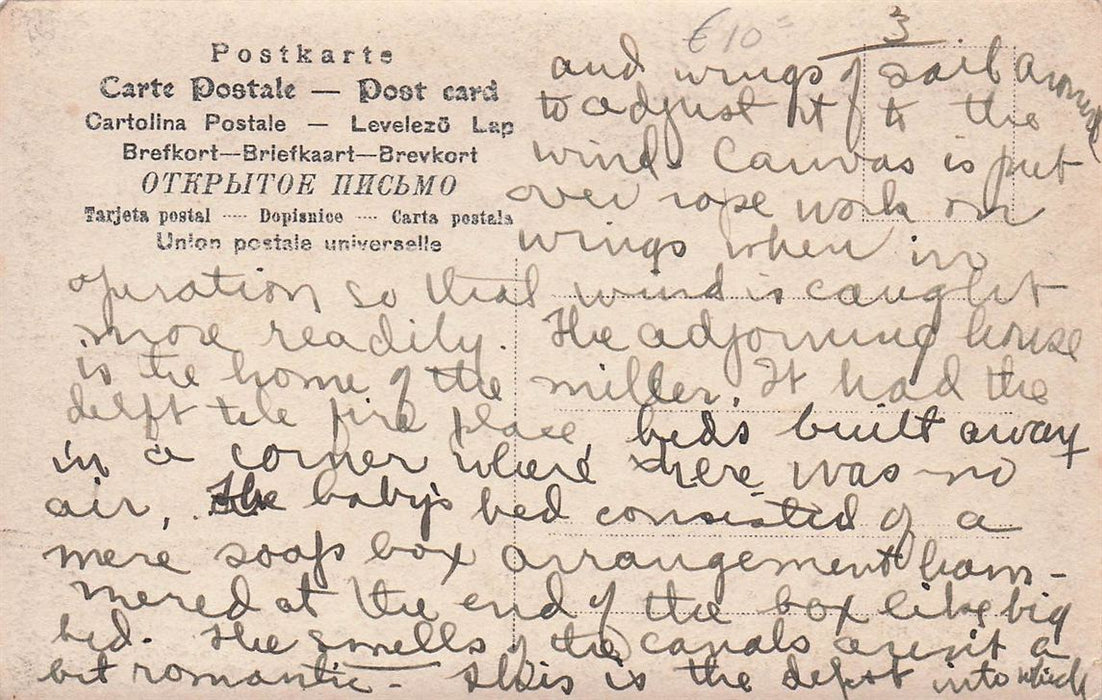 €10=
3
Postkarte
Carte Postale — Post card
Cartolina Postale — Levelező Lap
Brefkort—Briefkaart—Brevkort
ОТКРЫТОЕ ПИСЬМО
Tarjeta postal ---- Dopisnice ---- Carta postala
Union postale universelle
and wings of sail around
to adjust it to the
wind. Canvas is put
over rope work on
wings when in
operation so that wind is caught
more readily. The adjoining house
is the home of the miller. It had the
delft tile fire place, beds built away
in a corner where there was no
air, the baby's bed consisted of a
mere soap box arrangement ham-
mered at the end of the box like big
bed. The smells of the canals aren't a
bit romantic - This is the depot into which